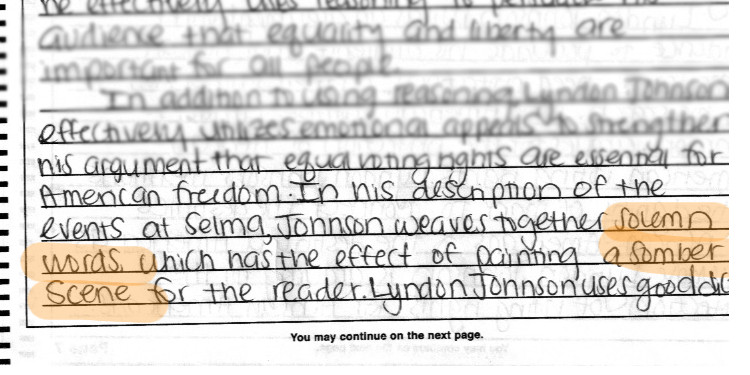 he effectively uses reasoning to persuade his
audience that equality and liberty are
important for all people.
In addition to using reasoning, Lyndon Johnson
effectively utilizes emotional appeals to strengthen
his argument that equal voting rights are essential for
American freedom. In his description of the
events at Selma, Johnson weaves together solemn
words, which has the effect of painting a somber
scene for the reader. Lyndon Johnson uses good
You may continue on the next page.